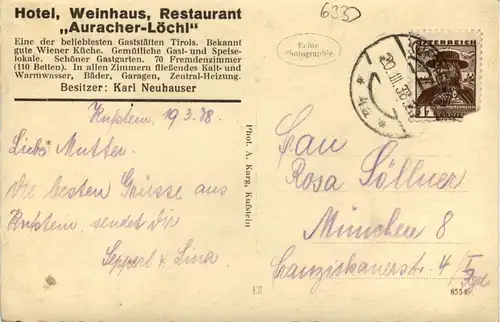 Hotel, Weinhaus, Restaurant
„Auracher-Löchl"
Eine der beliebtesten Gaststätten Tirols. Bekannt
gute Wiener Küche. Gemütliche Gast- und Speise-
lokale. Schöner Gastgarten. 70 Fremdenzimmer
(110 Betten). In allen Zimmern fließendes Kalt- und
Warmwasser, Bäder, Garagen, Zentral-Heizung.
Besitzer: Karl Neuhauser
Kufstein, 19.3.38
Liebe Mutter.
Die besten Grüsse aus
Kufstein sendet Dir
Sepperl u Lina
Phot. A. Karg, Kufstein
6330
Echte
Photographie
20.III.38
ÖSTERREICH
Frau
Rosa Söllner
München 8
Franziskanerstr. 4/I
8554